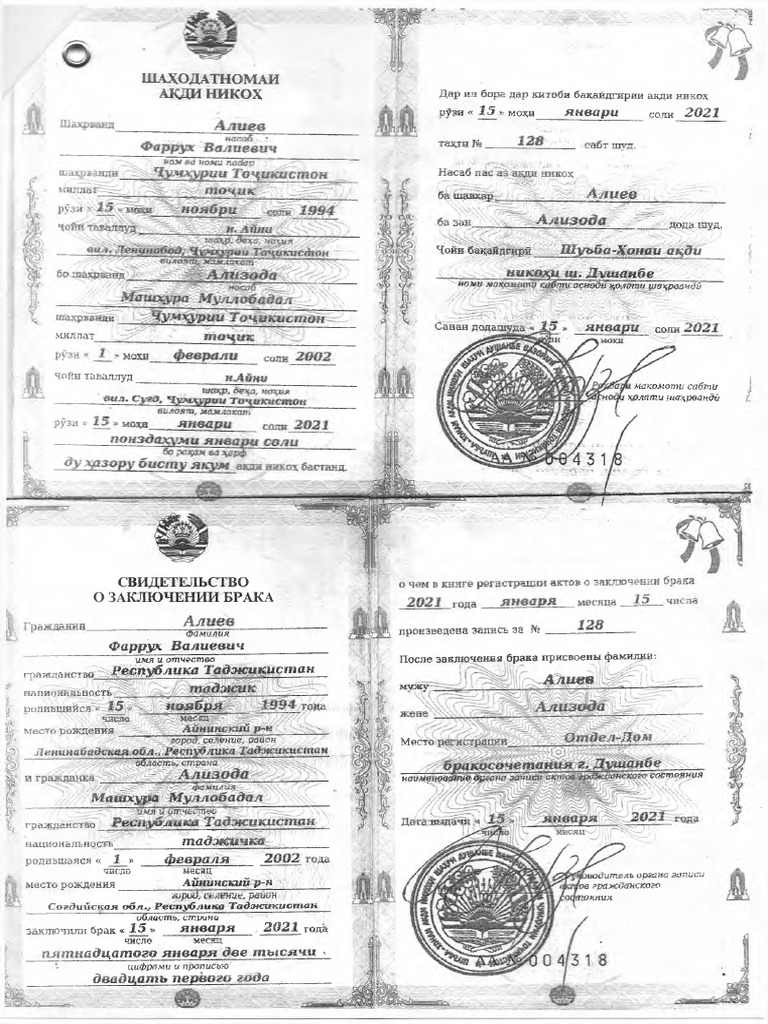 ШАҲОДАТНОМАИ
АҚДИ НИКОҲ
Шаҳрванд Алиев
насаб
Фаррух Валиевич
ном ва номи падар
шаҳрванди Ҷумҳурии Тоҷикистон
миллат тоҷик
рӯзи « 15 » моҳи ноябри соли 1994
ҷойи таваллуд н. Айни
шаҳр, деҳа, ноҳия
вил. Ленинобод, Ҷумҳурии Тоҷикистон
вилоят, мамлакат
бо шаҳрванд Ализода
насаб
Машҳура Муллобадал
шаҳрванди Ҷумҳурии Тоҷикистон
миллат тоҷик
рӯзи « 1 » моҳи феврали соли 2002
ҷойи таваллуд н.Айни
шаҳр, деҳа, ноҳия
вил. Суғд, Ҷумҳурии Тоҷикистон
вилоят, мамлакат
рӯзи « 15 » моҳи январи соли 2021
понздаҳуми январи соли
бо рақам ва ҳарф
ду ҳазору бисту якум ақди никоҳ бастанд.
Дар ин бора дар китоби бақайдгирии ақди никоҳ
рӯзи « 15 » моҳи январи соли 2021
таҳти № 128 сабт шуд.
Насаб пас аз ақди никоҳ
ба шавҳар Алиев
ба зан Ализода дода шуд.
Ҷойи бақайдгирӣ Шуъба-Хонаи ақди
никоҳи ш. Душанбе
номи мақомоти сабти асноди ҳолати шаҳрвандӣ
Санаи додашуда « 15 » январи соли 2021
рӯзи моҳи
Роҳбари мақомоти сабти
асноди ҳолати шаҳрвандӣ
АА № 004318
СВИДЕТЕЛЬСТВО
О ЗАКЛЮЧЕНИИ БРАКА
Гражданин Алиев
фамилия
Фаррух Валиевич
имя и отчество
гражданство Республика Таджикистан
национальность таджик
родившийся « 15 » ноября 1994 года
число месяц
место рождения Айнинский р-н
город, селение, район
Ленинабадская обл., Республика Таджикистан
область, страна
и гражданка Ализода
фамилия
Машхура Муллобадал
имя и отчество
гражданство Республика Таджикистан
национальность таджичка
родившаяся « 1 » февраля 2002 года
число месяц
место рождения Айнинский р-н
город, селение, район
Согдийская обл., Республика Таджикистан
область, страна
заключили брак « 15 » января 2021 года
число месяц
пятнадцатого января две тысячи
цифрами и прописью
двадцать первого года
о чем в книге регистрации актов о заключении брака
2021 года января месяца 15 числа
произведена запись за № 128
После заключения брака присвоены фамилии:
мужу Алиев
жене Ализода
Место регистрации Отдел-Дом
бракосочетания г. Душанбе
наименование органа записи актов гражданского состояния
Дата выдачи « 15 » января 2021 года
число месяц
Руководитель органа записи
актов гражданского
состояния
АА № 004318